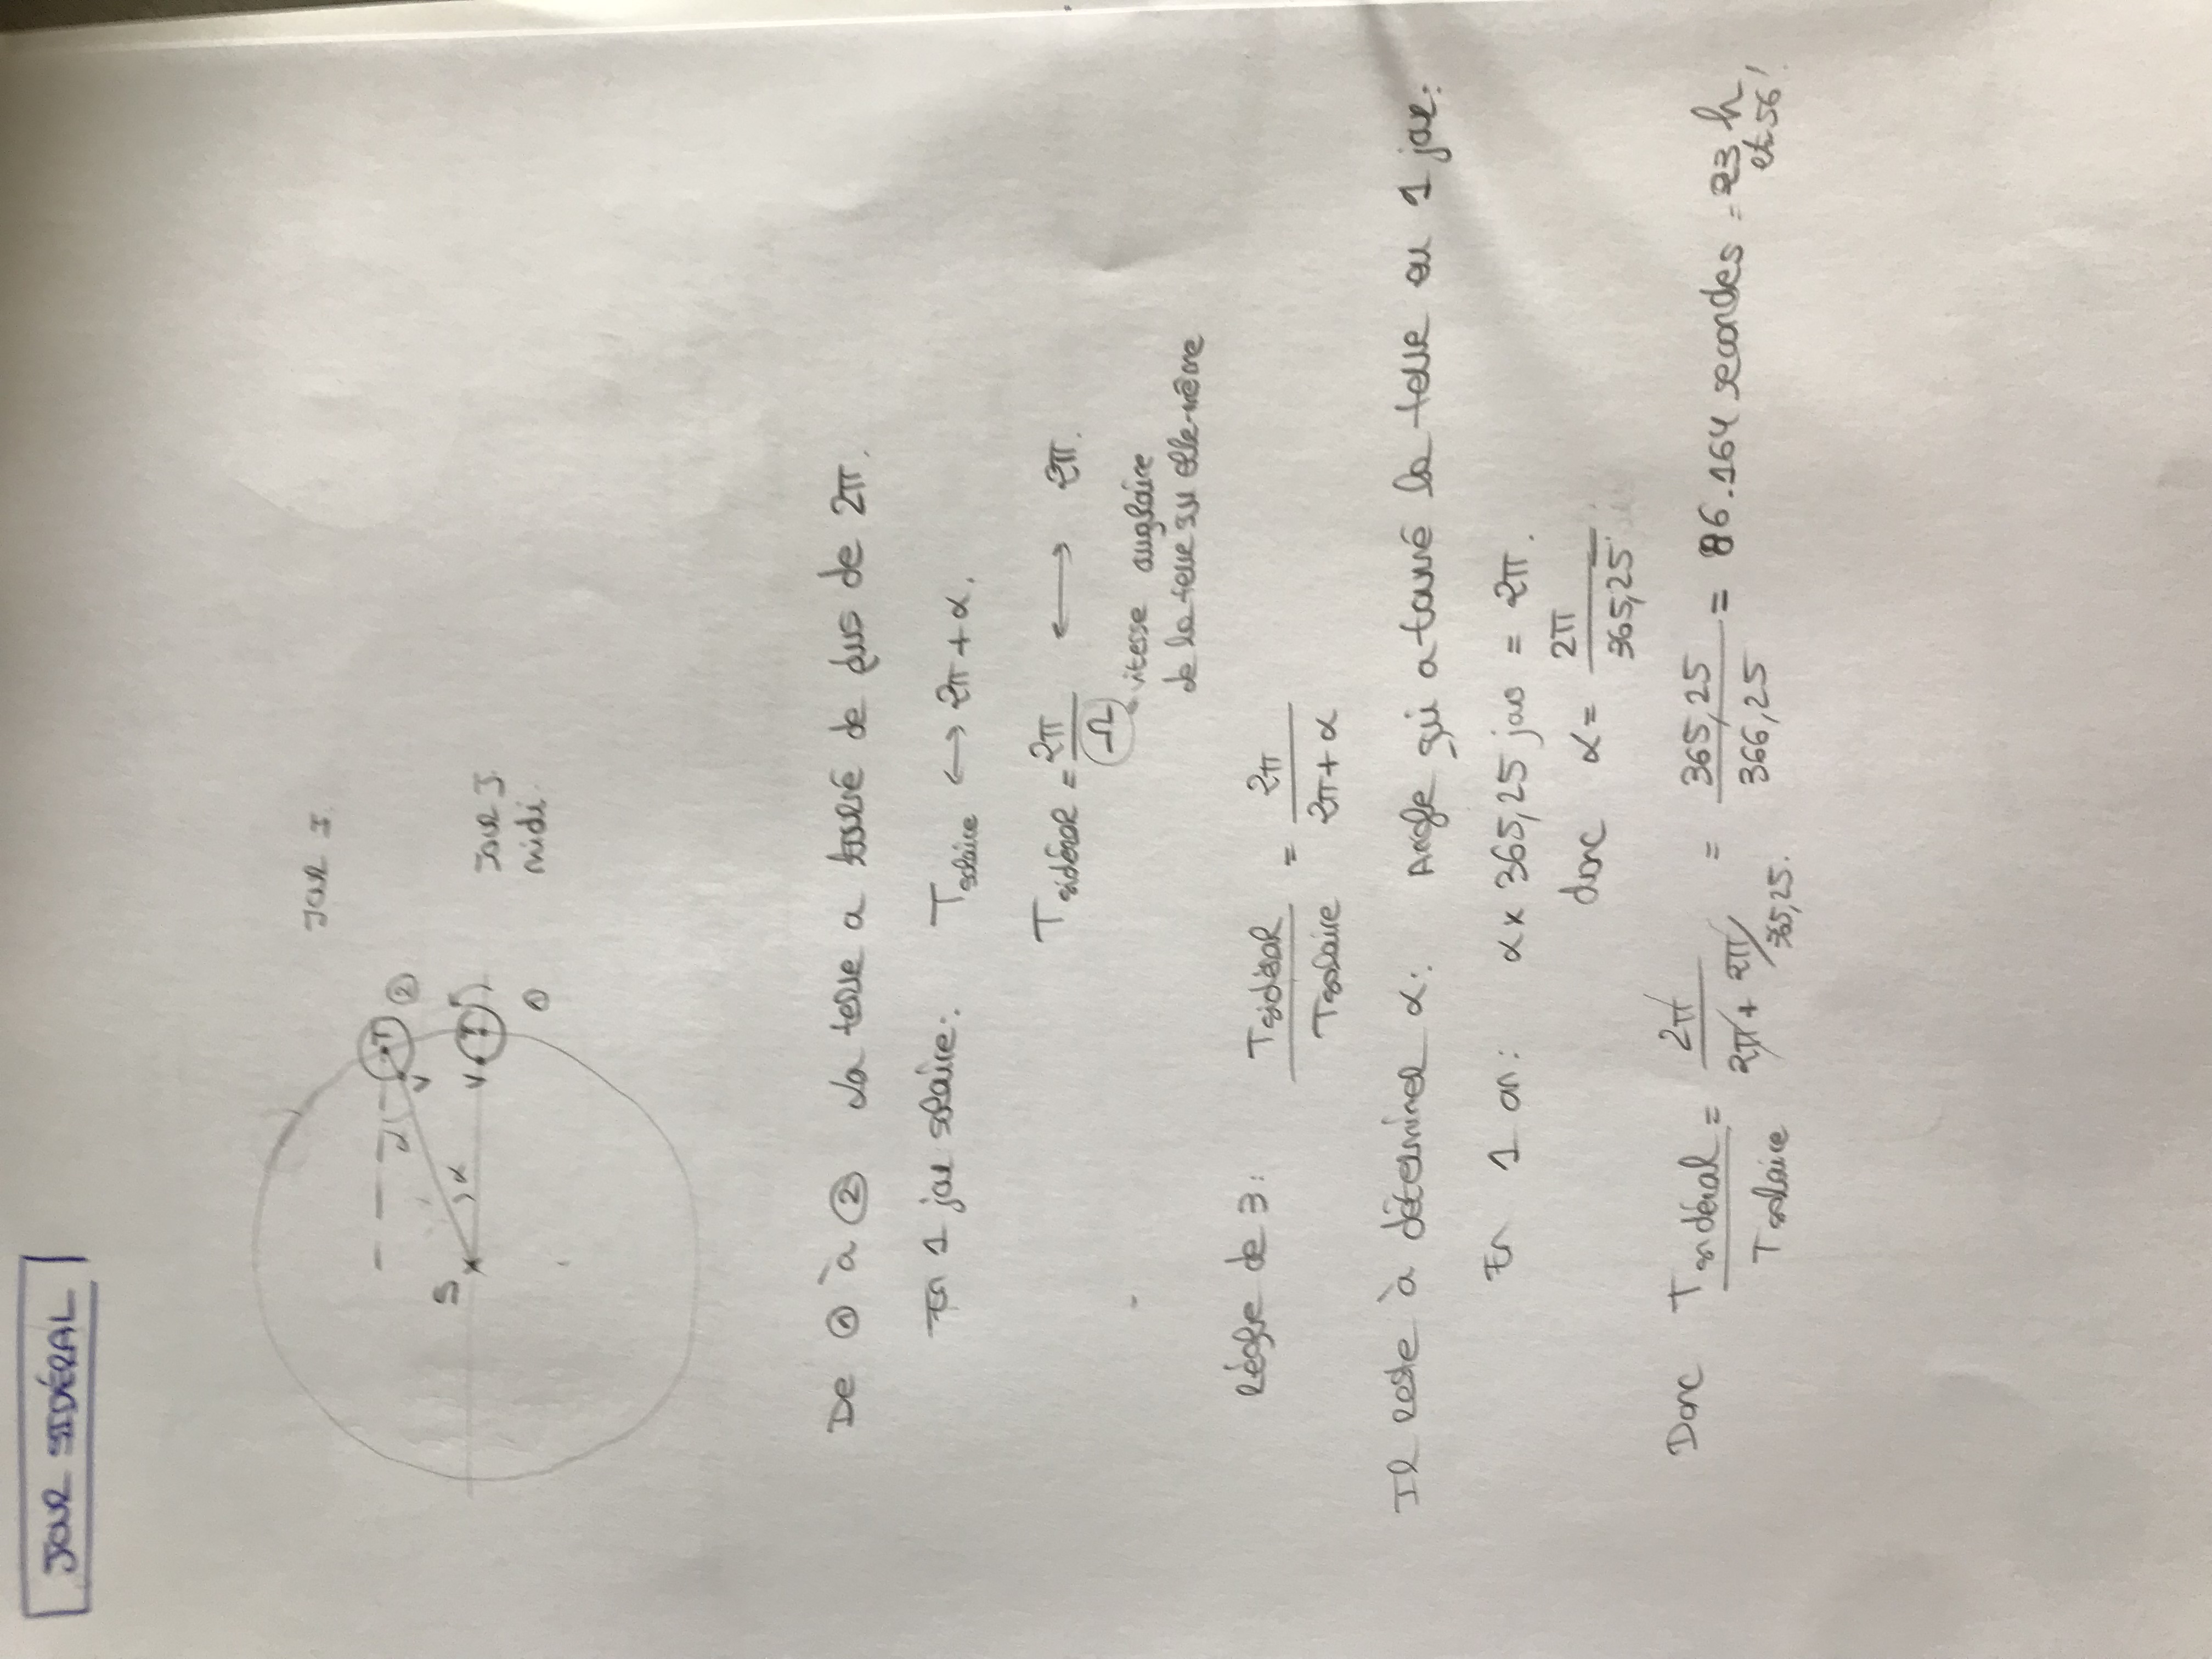 JOUR SIDÉRAL
JOUR I
α
T
②
V
S
α
V
T
JOUR J
①
midi
De ① à ② la terre a tourné de plus de 2π.
En 1 jour solaire: Tsolaire ↔ 2π + α.
Tsidéral = 2π/Ω ↔ 2π.
vitesse angulaire
de la terre sur elle-même
Règle de 3: Tsidéral/Tsolaire = 2π/(2π + α)
Il reste à déterminer α: Angle qui a tourné la terre en 1 jour:
En 1 an: α x 365,25 jours = 2π.
donc α = 2π/365,25
Donc Tsidéral/Tsolaire = 2π/(2π + 2π/365,25.) = 365,25/366,25 = 86.164 secondes = 23 h
et 56'